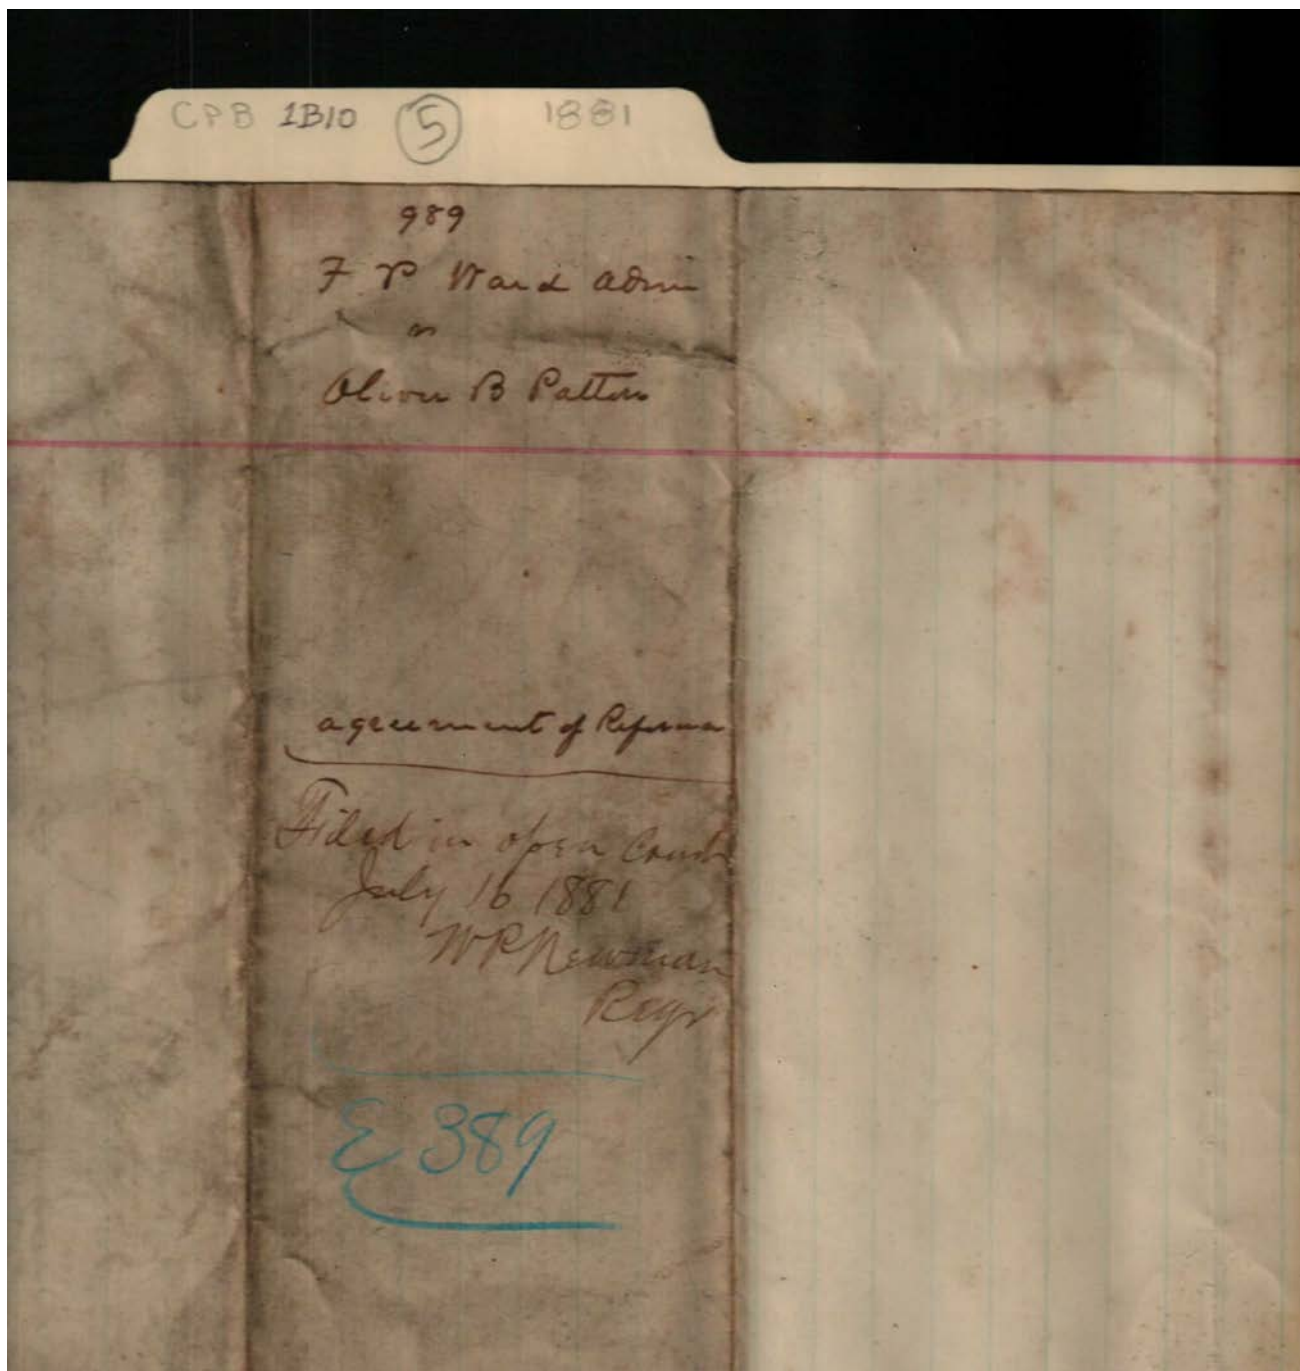 CPB 1B10 5 1881
989
F P Ward Admr
vs
Oliver B Patton
agreement of
Filed in open Court
July 16 1881
W P Newman
Regr
E 389